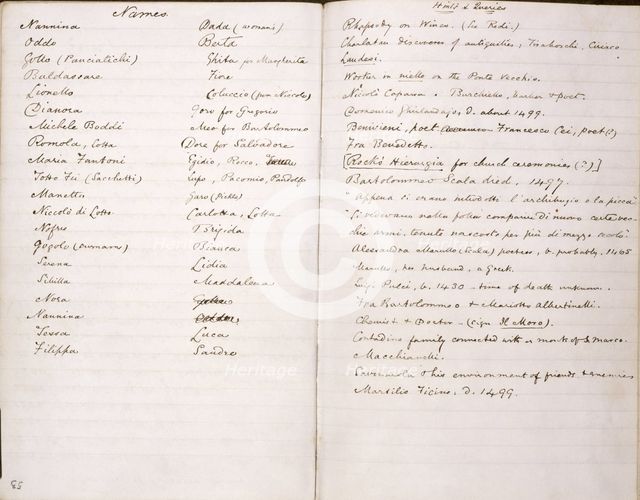 Names
Nannina
Oddo
Gotto (Panciatichi)
Baldassare
Lionetto
Dianora
Michele Boddi
Romola, Cotta
Maria Fantoni
Totto Tei (Sacchetti)
Manetto
Niccolò di Lotto
Nofri
Gogolo
Serena
Sibilla
Nora
Nannina
Tessa
Filippa
Dada (woman's)
Berta
Ghita for Margherita
Fiore
Coluccio (from Niccolo)
Goro for Gregorio
Meo for Bartolommeo
Dore for Salvadore
Egidio, Rocco,
Lupo, Pacomio, Pandolfo
Garo
Carlotta, Lotta
Brigida
Bianca
Lidia
Maddalena
Luca
Sandro
85
Hints & Queries
Rhapsody on Wines. (See Redi.)
Charlatan discoverer of antiquities, Tiraboschi, Ciriaco.
Laudesi.
Worker in niello on the Ponte Vecchio.
Niccolò Caparra & Burchiello, barber & poet.
Domenico Ghirlandajo d. about 1499.
Benivieni, poet Francesco Cei, poet (?)
Fra Benedetto.
[Rock's Hierurgia for church ceremonies (?)]
Bartolommeo Scala died, 1497.
"Appena si erano introdotti l'archibugio e la picca
si vedevano nelle compagnie di nuovo certe vec-
chie armi, tenute nascoste per più di mezzo secolo"
Alessandra Marullo (Scala) poetess, b. probably, 1465
Marullo, her husband, a Greek.
Luigi Pulci, b. 1430 – time of death unknown.
Fra Bartolommeo & Mariotto Albertinelli.
Chemist & Doctor – (sign Il Moro).
Contadino family connected with a monk of S. Marco.
Macchiavelli.
Savonarola & his environment of friends & enemies
Marsilio Ficino, d. 1499.
Heritage
Heritage